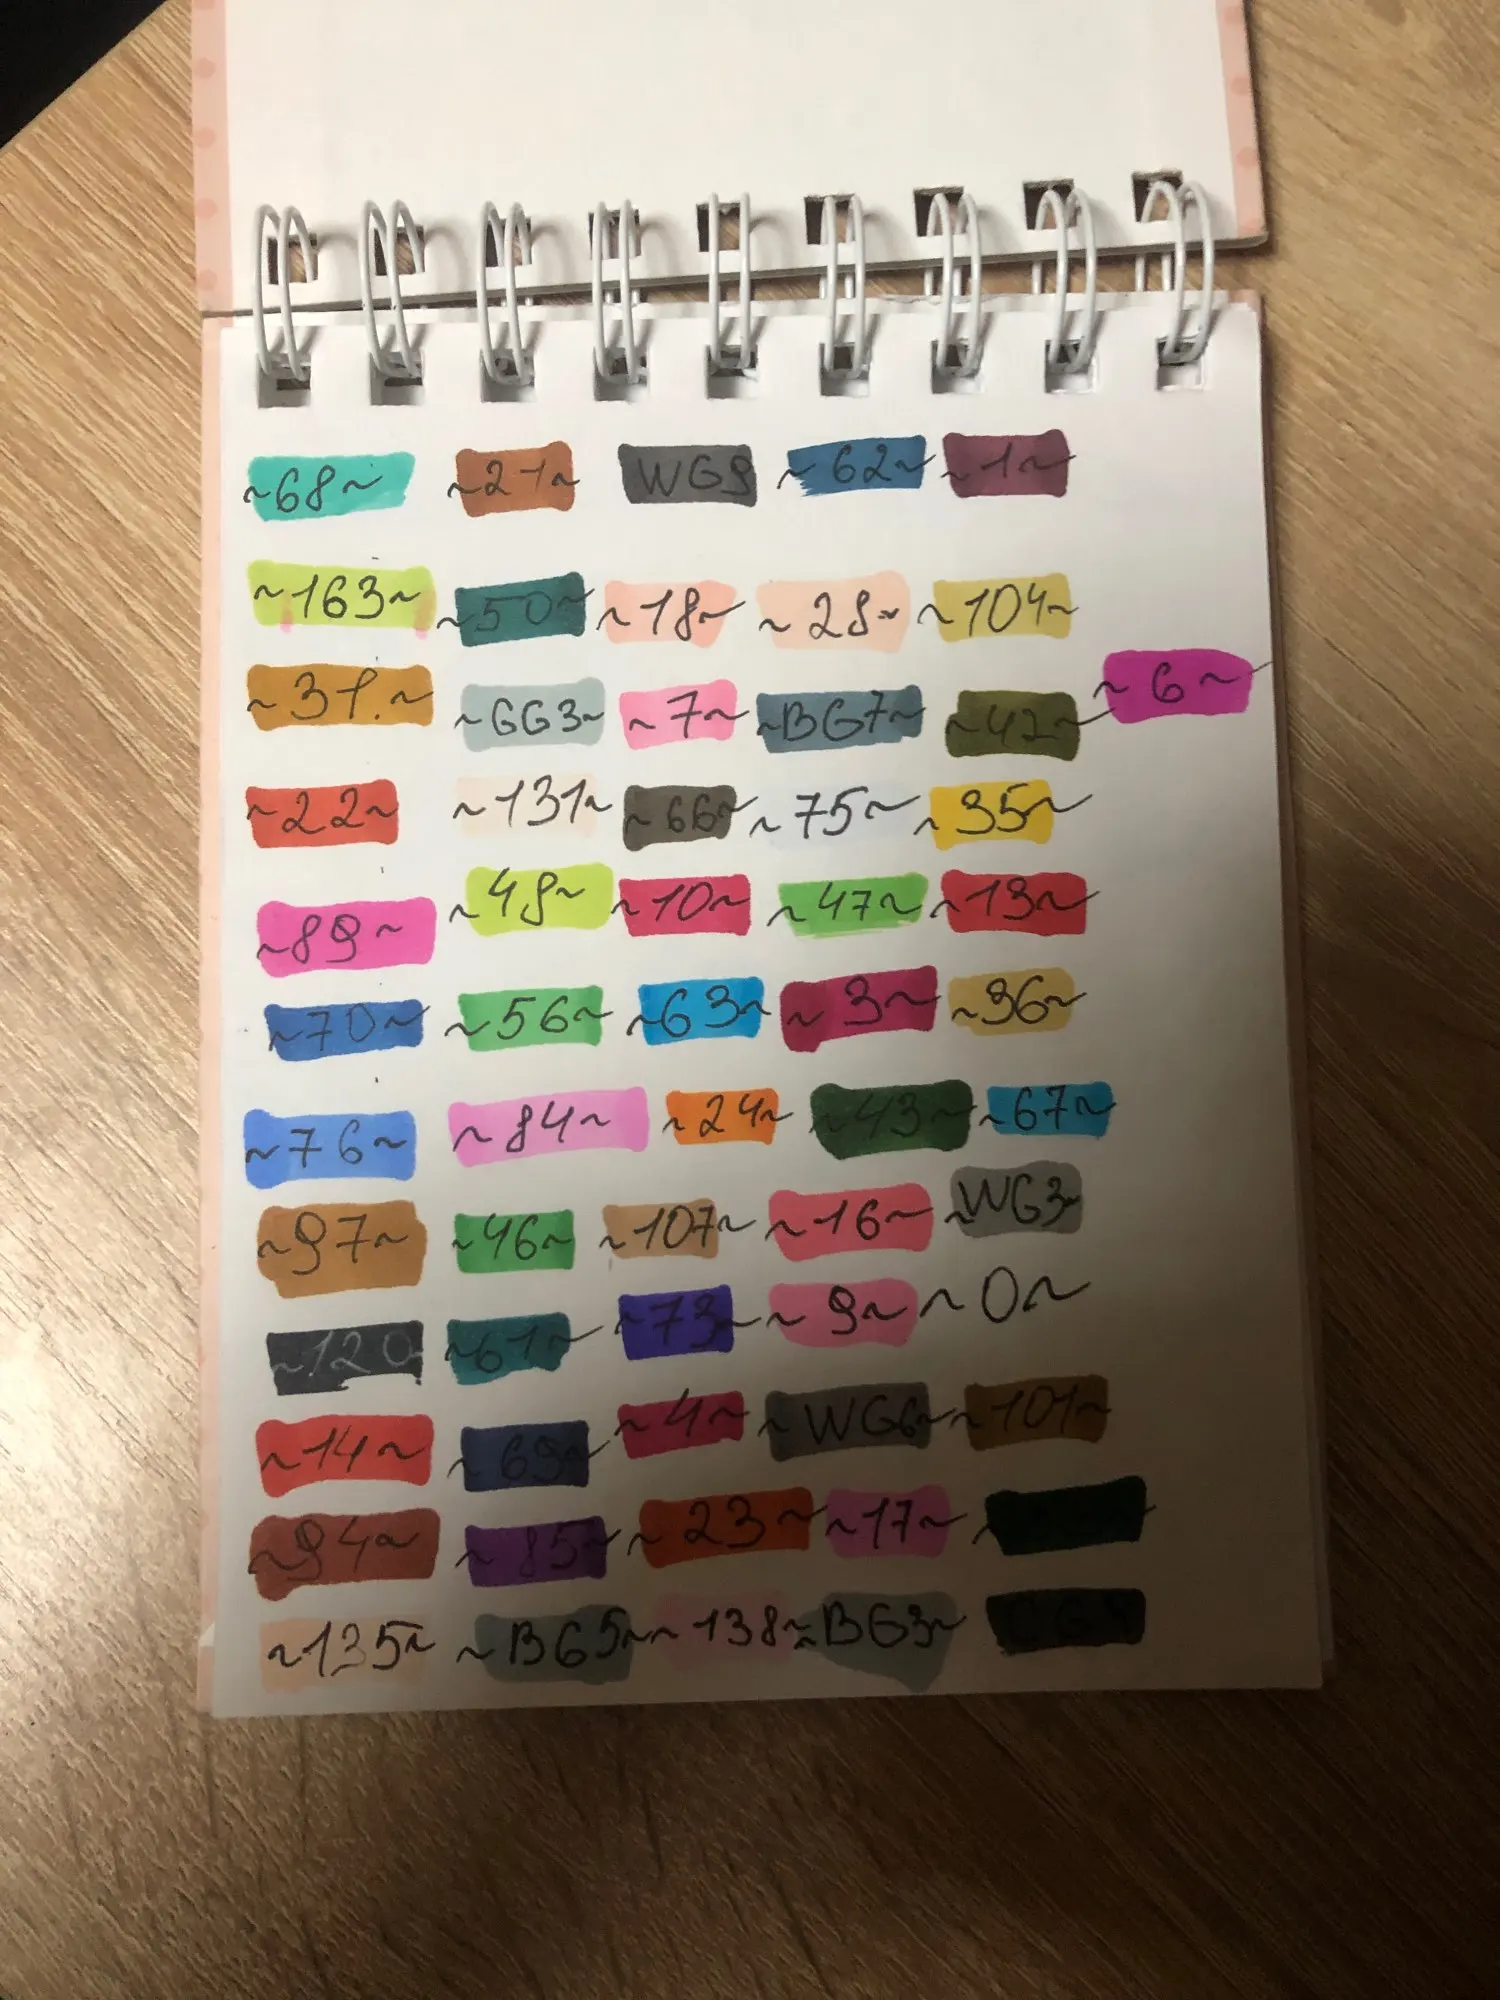 ~68~ ~21~ WG9 ~62~ ~1~
~163~ ~50~ ~18~ ~28~ ~104~
~31.~ ~GG3~ ~7~ ~BG7~ ~42~ ~6~
~22~ ~131~ ~66~ ~75~ ~35~
~89~ ~48~ ~10~ ~47~ ~13~
~70~ ~56~ ~63~ ~3~ ~36~
~76~ ~84~ ~24~ ~43~ ~67~
~97~ ~46~ ~107~ ~16~ ~WG3~
~120~ ~61~ ~73~ ~9~ ~0~
~14~ ~69~ ~4~ ~WG6~ ~101~
~94~ ~85~ ~23~ ~17~
~135~ ~BG5~ ~138~ ~BG3~